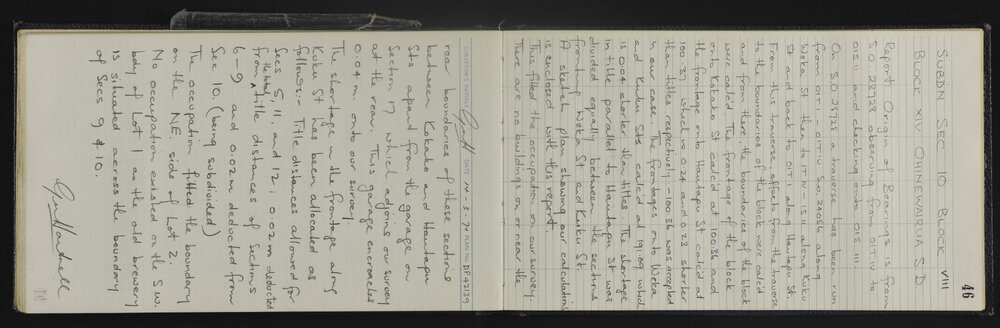 46
SUBDN SEC 10 BLOCK VIII
BLOCK XIV OHINEWAIRUA S.D
Report: Origin of Bearings is from
S.O 28728 observing from OIT IV to
On S.O 28728 a traverse has been run
from OIT I to OIT IV S.O 24056 along
Weka St then to IT IV - IS II along Kuku
St and back to OIT I along Hautapu St
From this traverse offsets from the traverse
to the boundaries of the block were calc'd
and from there the boundaries of the block
were calc'd. The frontage of the block
onto Kokako St calc'd at 100.36 and
the frontage onto Hautapu St calc'd at
100.37 which is 0.24 and 0.23 shorter
than titles respectively - 100.36 was accepted
in our case. The frontages onto Weka
and Kuku Sts calc'd at 191.09 which
is 0.04 shorter than titles. The shortage
in title parallel to Hautapu St was
divided equally between the sections
fronting Weka St and Kuku St.
A sketch plan showing our calculations
is enclosed with this report.
This fitted the occupation on our survey.
There are no buildings on or near the
SURVEYOR'S INITIALS DATE 14-3-74 PLAN NO DP 42139
rear boundaries of these sections
between Kokako and Hautapu
Sts apart from the garage on
Section 17 which adjoins our survey
at the rear. This garage encroaches
0.04 m. onto our survey.
The shortage in the frontage along
Kuku St has been allocated as
follows:- Title distances allowed for
Secs 5, 11, and 12; 0.02m deducted
from the total title distances of Sections
6-9 and 0.02m deducted from
Sec 10. (being subdivided)
The occupation fitted the boundary
on the NE side of Lot 2.
No occupation existed on the S.W.
body of Lot 1 as the old brewery
is situated across the boundary
of Secs 9 & 10.